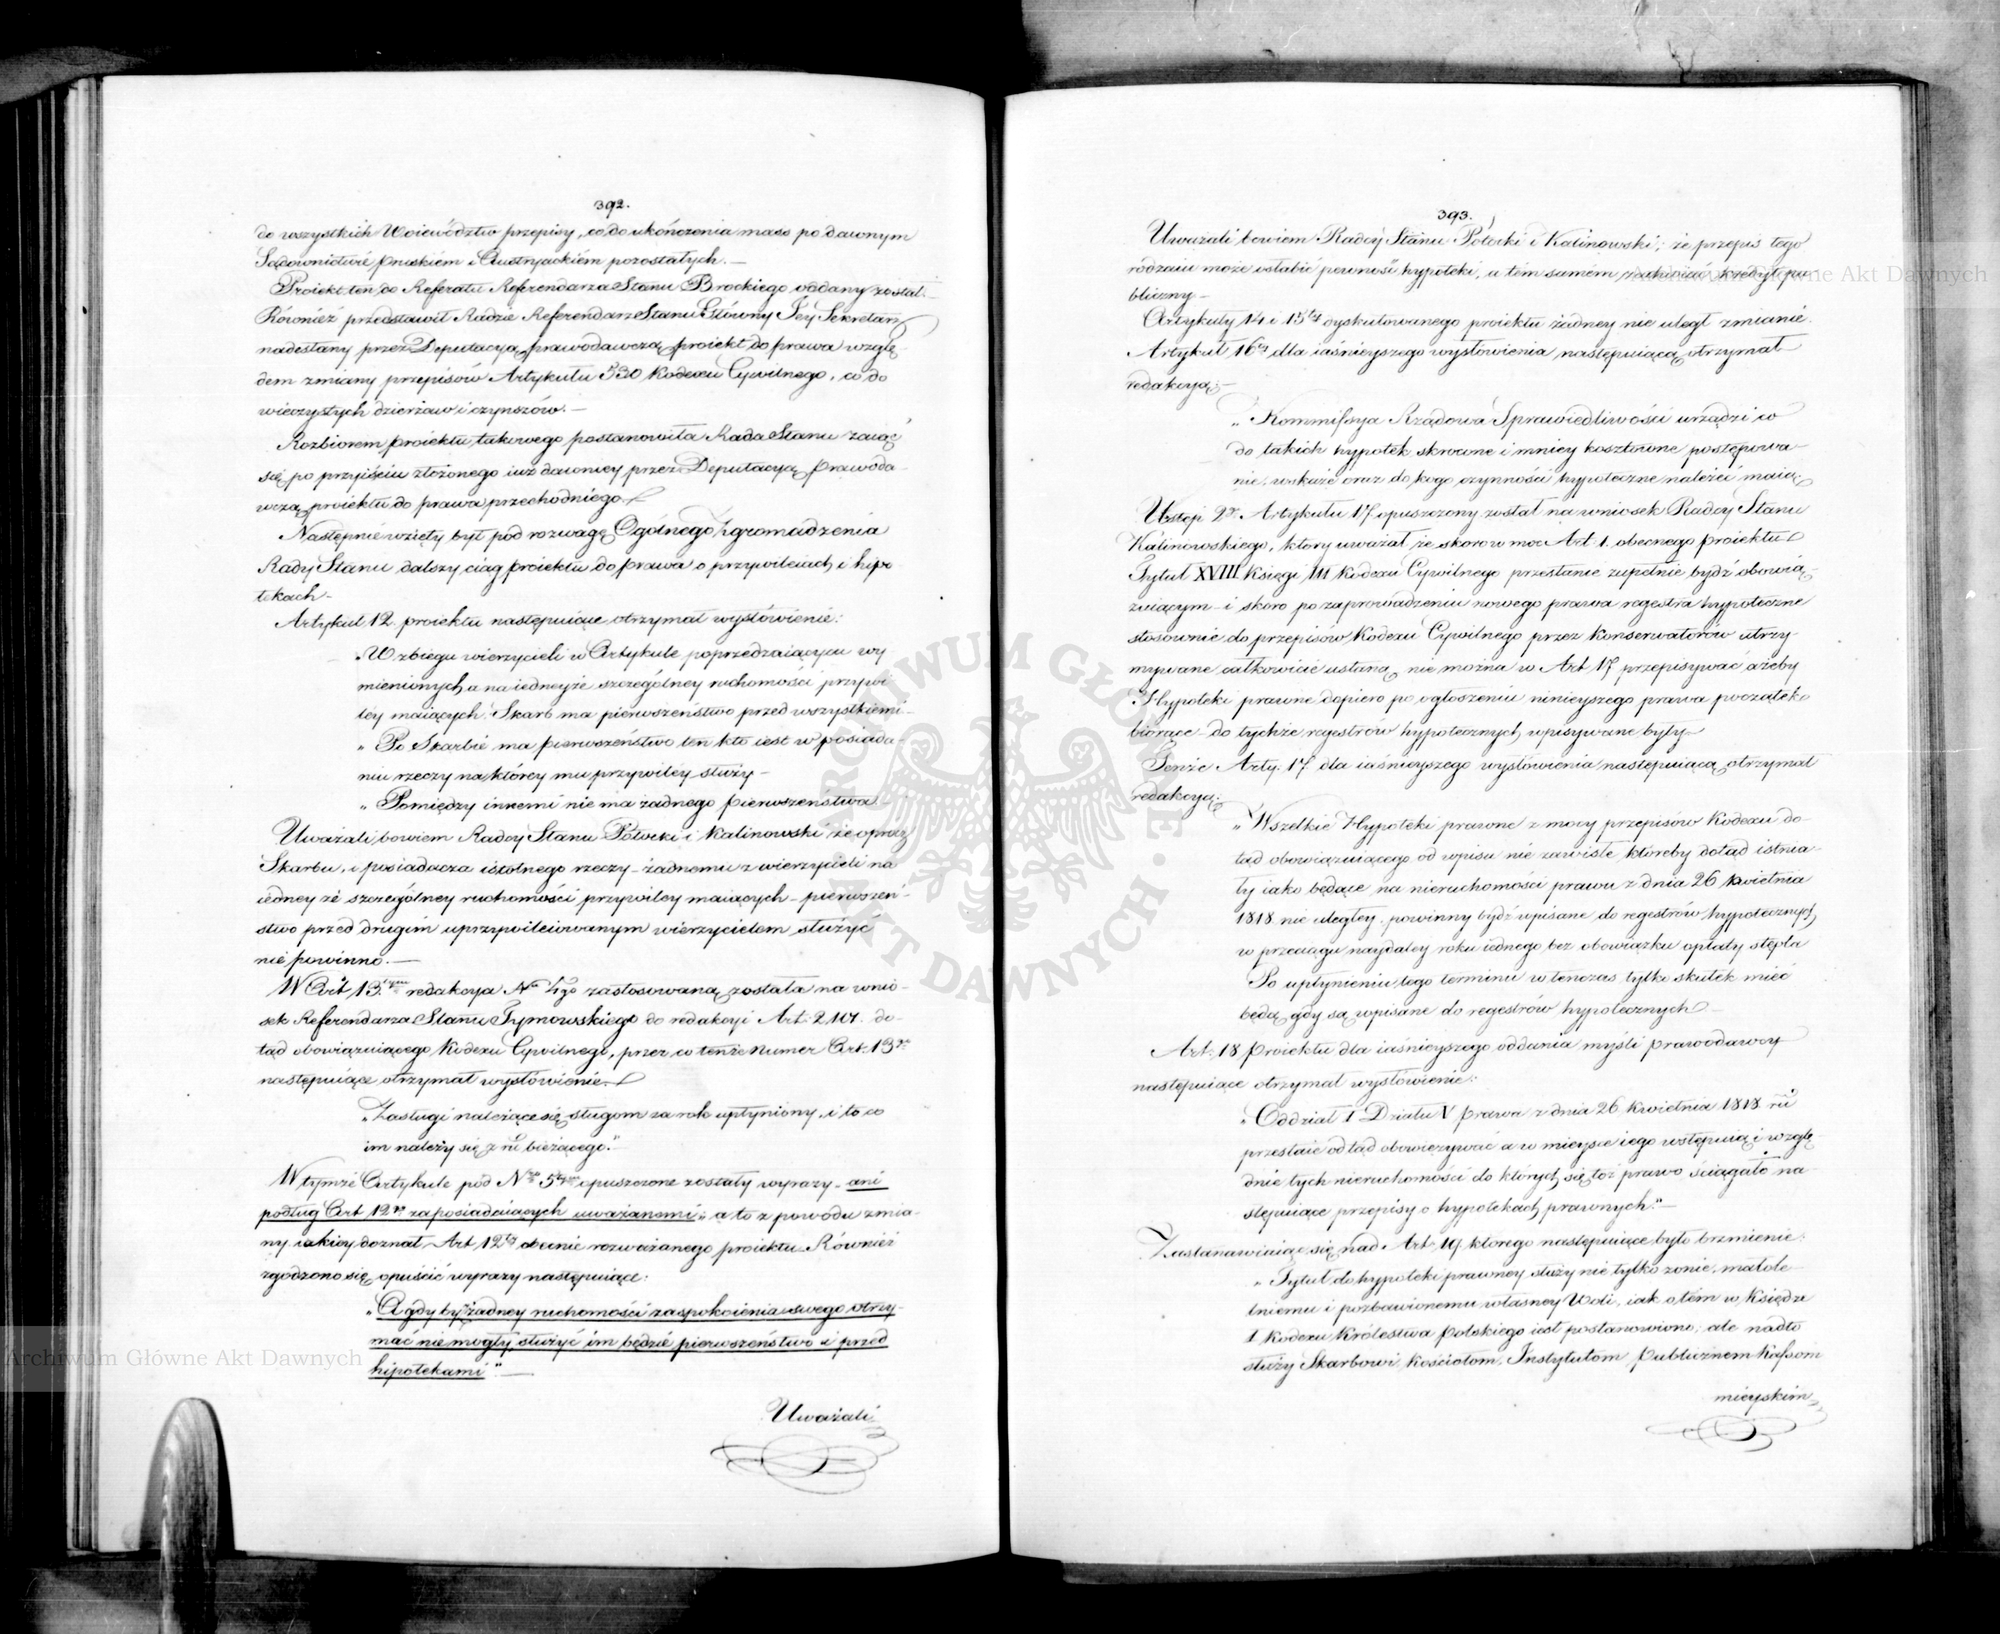 392.
do wszystkich Woiewództw przepisy, co do ukończenia mass po dawnym
Sądownictwie pruskiem i Austryackiem pozostałych. —
Proiekt ten do Referatu Referendarza Stanu Brockiego oddany został. —
Również przedstawił Radzie Referendarz Stanu Główny Jey Sekretarz
nadesłany przez Deputacyą prawodawczą proiekt do prawa wzglę-
dem zmiany przepisów Artykułu 530 Kodexu Cywilnego, co do
wieczystych dzierżaw i czynszów. —
Rozbiorem proiektu takowego postanowiła Rada Stanu zaiąć
się po przyięciu złożonego iuż dawniey przez Deputacyą Prawoda-
wczą proiektu do prawa przechodniego.
Następnie wzięty był pod rozwagę Ogólnego Zgromadzenia
Rady Stanu dalszy ciąg proiektu do prawa o przywileiach i hipo-
tekach —
Artykuł 12. proiektu następuiące otrzymał wysłowienie:
„W zbiegu wierzycieli w Artykule poprzedzaiącym wy
mienionych a na iedneyże szczególney ruchomości przywi
ley maiących. Skarb ma pierwszeństwo przed wszystkiemi —
„Po Skarbie ma pierwszeństwo ten kto iest w posiada-
niu rzeczy na którey mu przywiley służy —
„Pomiędzy innemi nie ma żadnego pierwszeństwa —
Uważali bowiem Radcy Stanu Potocki i Kalinowski, że oprócz
Skarbu, i posiadacza istotnego rzeczy — żadnemu z wierzycieli na
iedney że szczególney ruchomości przywiley maiących — pierwszeń-
stwo przed drugim uprzywileiowanym wierzycielem służyć
nie powinno. —
W Art. 13. redakcya Nru 4go zastosowaną została na wnio-
sek Referendarza Stanu Tymowskiego do redakcyi Art. 2101. do-
tąd obowiązuiącego Kodexu Cywilnego, przez co tenże numer Art. 13go
następuiące otrzymał wysłowienie. —
„Zasługi należące się sługom za rok upłyniony, i to co
im należy się z ru bieżącego." —
W tymże Artykule pod Nrem 5tym opuszczone zostały wyrazy — ani
podług Art 12go za posiadaiących uważanemi „ a to z powodu zmia-
ny iakiey doznał Art 12ty obecnie rozważanego proiektu. Również
zgodzono się opuścić wyrazy następuiące:
„A gdy by z żadney ruchomości zaspokoienia swego otrzy-
mać nie mogły służyć im będzie pierwszeństwo i przed
hipotekami". —
Uważali
393.
Uważali bowiem Radcy Stanu Potocki i Kalinowski, że przepis tego
rodzaiu może osłabić pewność hypoteki, a tém samém zachwiać kredyt pu
bliczny —
Artykuły 14. i 15ty dyskutowanego proiektu żadney nie uległ zmianie.
Artykuł 16ty dla iaśnieyszego wysłowienia następuiącą otrzymał
redakcyą: —
„Kommissya Rządowa Sprawiedliwości urządzi co
do takich hypotek skrócone i mniey kosztowne postępowa-
nie, wskaże oraz do kogo czynności hypoteczne należeć maią
Ustęp 2gi Artykułu 17 opuszczony został na wniosek Radcy Stanu
Kalinowskiego, który uważał że skoro w moc Art. 1. obecnego proiektu
Tytuł XVIII Księgi III Kodexu Cywilnego przestanie zupełnie bydź obowią-
zuiącym — i skoro po zaprowadzeniu nowego prawa regestra hypoteczne
stosownie do przepisów Kodexu Cywilnego przez konserwatorów utrzy-
mywane całkowicie ustaną, nie można w Art 17 przepisywać ażeby
Hypoteki prawne dopiero po ogłoszeniu ninieyszego prawa początek
biorące — do tychże regestrów hypotecznych wpisywane były —
Tenże Arty. 17 dla iaśnieyszego wysłowienia następuiącą otrzymał
redakcyą:
„Wszelkie Hypoteki prawne z mocy przepisów Kodexu do-
tąd obowiązuiącego od wpisu nie zawisłe któreby dotąd istnia-
ły iako będące na nieruchomości prawu z dnia 26 kwietnia
1818 nie uległey, powinny bydź wpisane do regestrów hypotecznych
w przeciągu naydaley roku iednego bez obowiązku opłaty stępla
Po upłynieniu tego terminu w tenczas tylko skutek mieć
będą gdy są wpisane do regestrów hypotecznych —
Art. 18 proiektu dla iaśnieyszego oddania myśli prawodawcy
następuiące otrzymał wysłowienie:
„Oddział I Działu V prawa z dnia 26 kwietnia 1818 ru
przestaie odtąd obowięzywać a w mieysce iego wstępuią i wzglę-
dnie tych nieruchomości do których się toż prawo ściągało na-
stępuiące przepisy o hypotekach prawnych." —
Zastanawiaiąc się nad Art. 19. którego następuiące było brzmienie:
„Tytuł do hypoteki prawney służy nie tylko żonie, małole-
tniemu i pozbawionemu własney Woli, iak o tém w Księdze
1 Kodexu Królestwa Polskiego iest postanowiono; ale nadto
służy Skarbowi, kościołom, Instytutom publicznem Kassom
mieyskim
Archiwum Główne Akt Dawnych
Archiwum Główne Akt Dawnych
ARCHIWUM GŁÓWNE AKT DAWNYCH